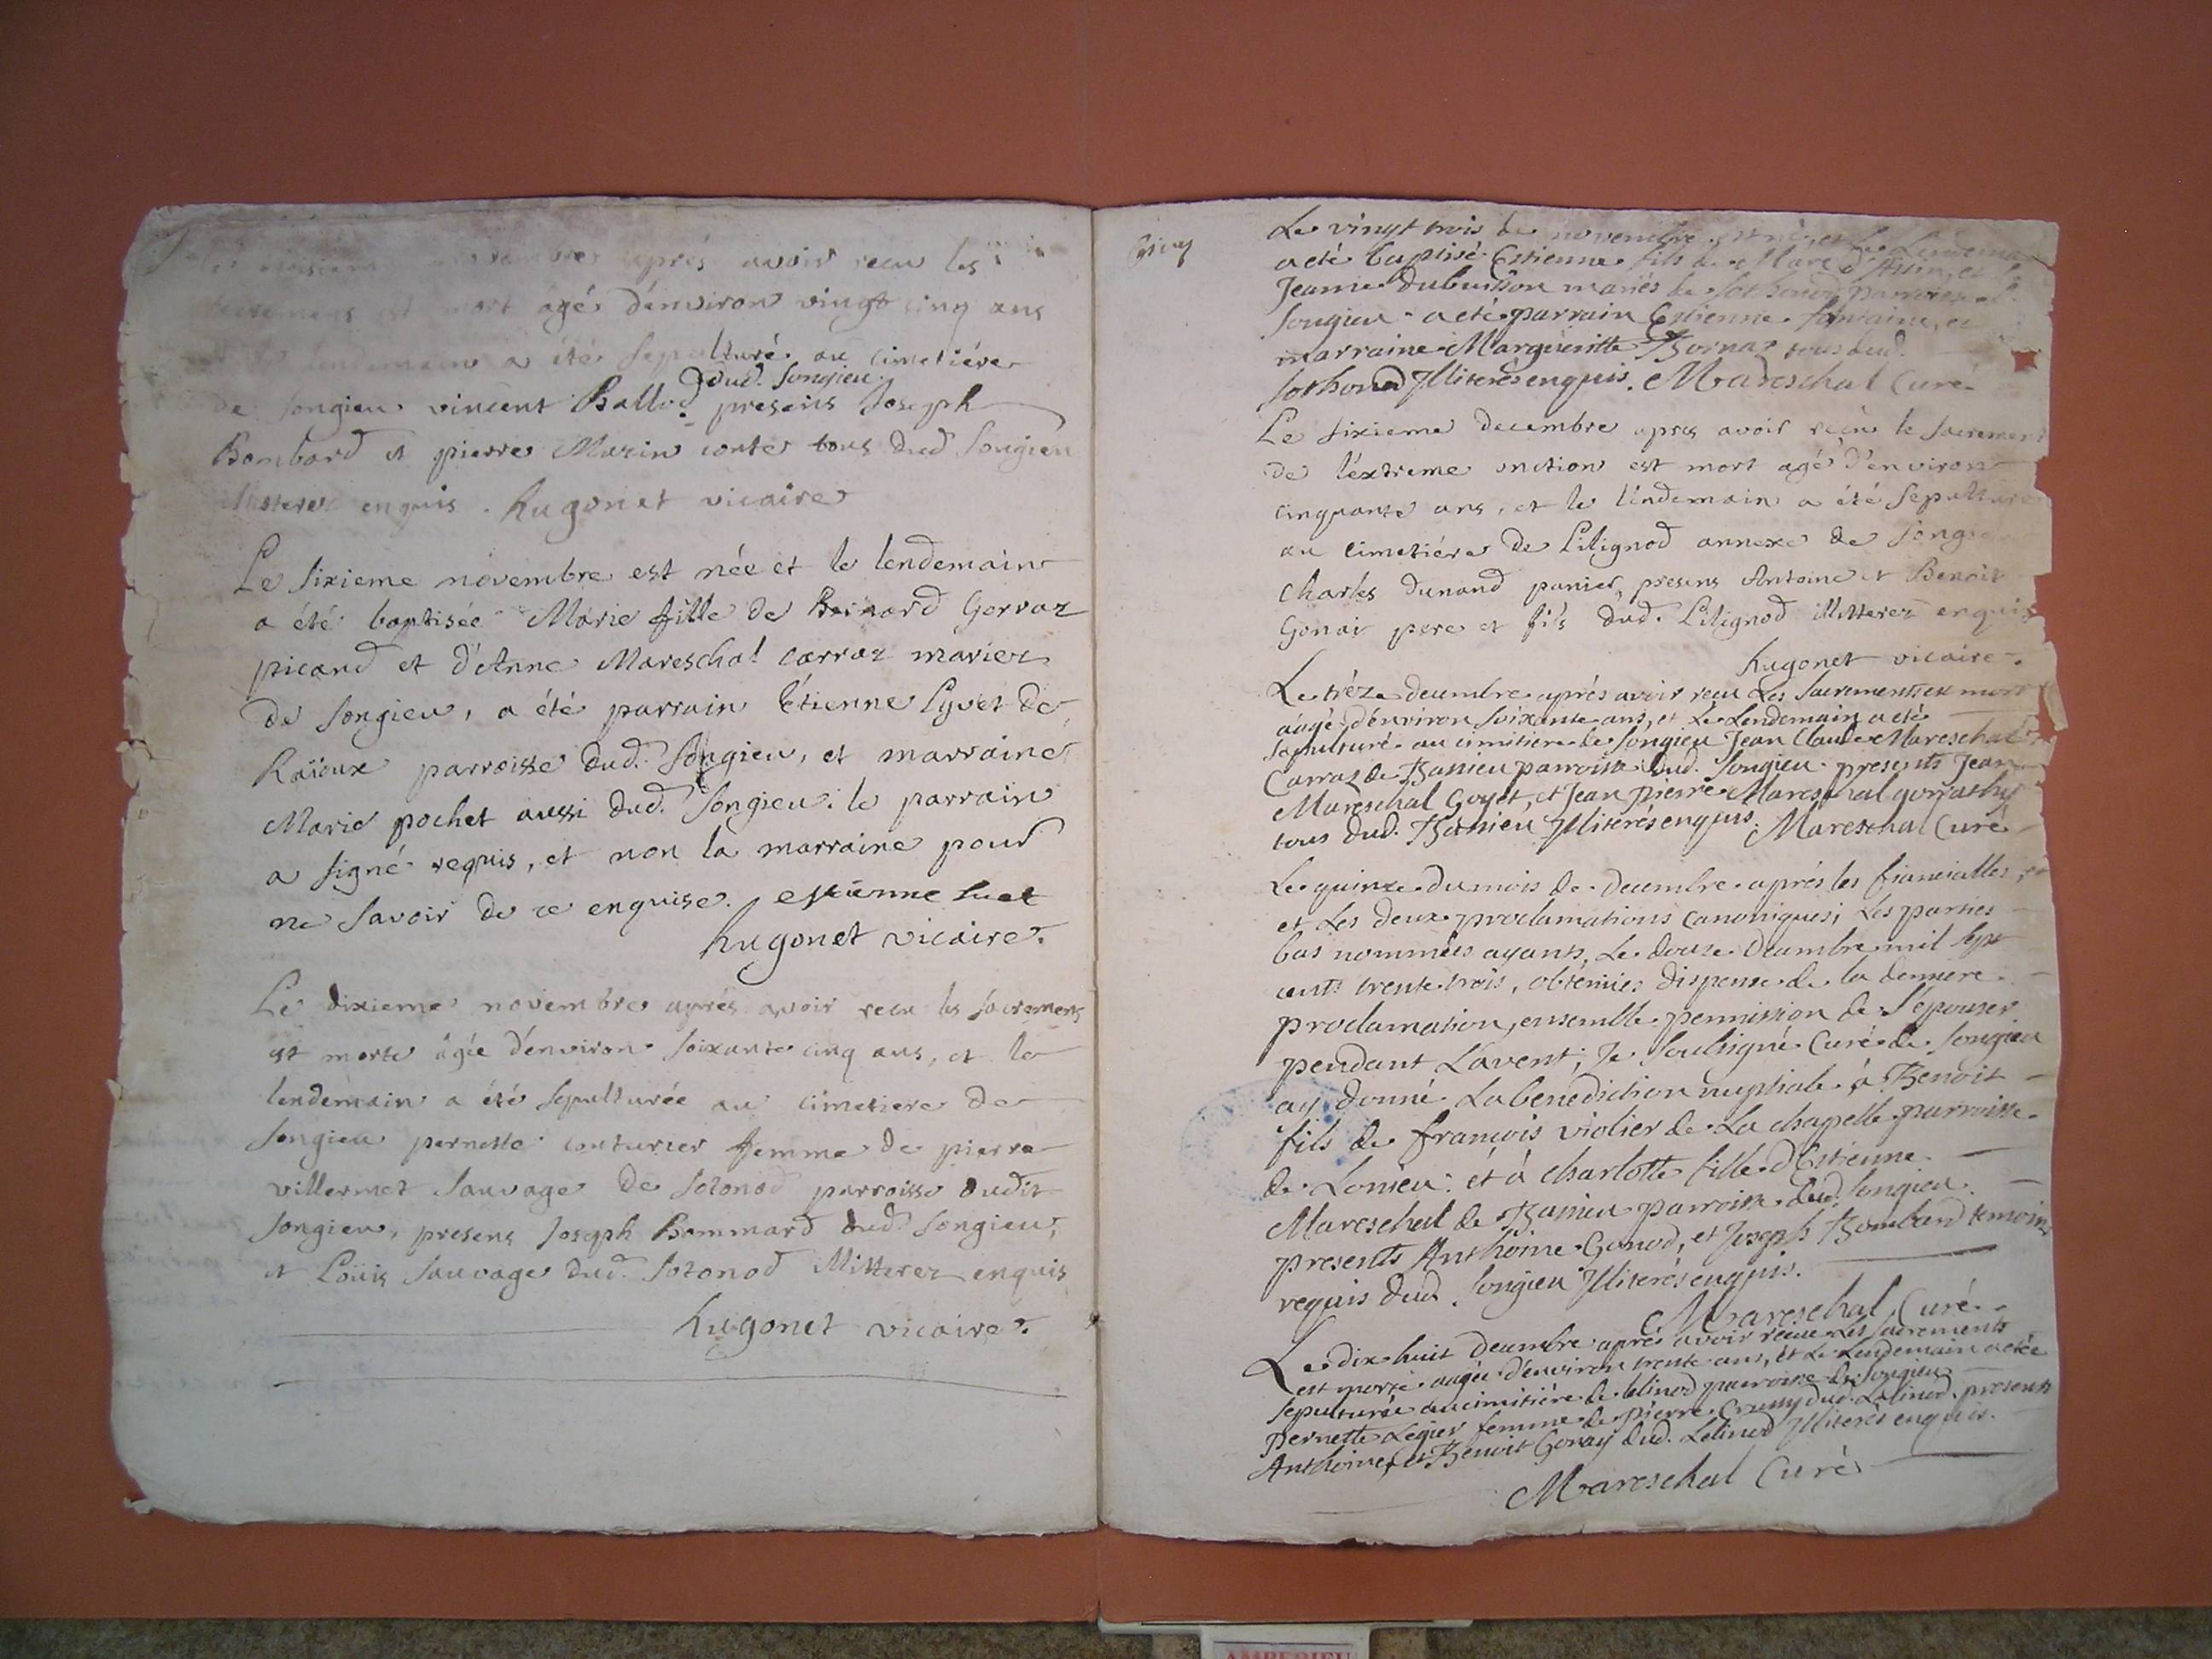 après avoir recu les
est mort âgé d'environ vingt cinq ans
lendemain a été sepulturé au cimetiére
dud. songieu.
de songieu vincent Ballod presens Joseph
Bombard et pierre Marin tous dud songieu
enquis. hugonet vicaire
Le sixieme novembre est née et le lendemain
a été baptisée Marie fille de Bernard Gervaz
picand et d'Anne Mareschal carraz mariez
de songieu, a été parrain Etienne Lyvet de
Raïoux parroisse dud. Songieu, et marraine
Marie pochet aussi dud. songieu. le parrain
a signé requis, et non la marraine pour
ne savoir de ce enquise. estienne
hugonet vicaire.
Le dixieme novembre après avoir recu les sacremens
est morte âgée d'environ soixante cinq ans, et le
lendemain a été sepulturée au cimetiere de
songieu pernette couturier femme de pierre
villermet sauvage de sotonod parroisse dudit
songieu, presens Joseph Bommard dud. songieu,
et Loüis sauvage dud. sotonod illitterez enquis
hugonet vicaire.
Le vingt trois de novembre est né, et le Lendemain
a eté baptisé Estienne fils de Marc et
Jeanne dubuisson mariés de sothonod parroisse de
songieu. a eté parrain Estienne fontaine, et
marraine Margueritte Bornaz tous dud.
sothonod Jlliterés enquis. Mareschal Curé
Le sixieme decembre apres avoir recu le sacrement
de l'éxtreme onction est mort agé d'environ
cinquante ans, et le lendemain a été sepulturé
au cimetiére de Lilignod annexe de songieu
charles dunand panier, presens Antoine et Benoit
Gonai pere et fils dud. Lilignod illitterez enquis
hugonet vicaire.
Le trèze decembre aprés avoir recu Les sacrements est mort
aagé d'environ soixante ans, et Le Lendemain a eté
sepulturé au cimitiere de songieu Jean Claude Mareschal
Carraz de Bassieu parroisse dud. songieu. presents Jean
Mareschal Goyet, et Jean pierre Mareschal gorrathy
tous dud. Bassieu Jlliterés enquis. Mareschal Curé
Le quinze du mois de decembre aprés les fiancialles,
et Les deux proclamations canoniques; Les parties
bas nommées ayants, Le douze decembre mil sept
cents trente trois, obtenües dispense de la derniere
proclamation, ensemble permission de s'epouser
pendant L'avent; Je soubsigné Curé de songieu
ay donné La benediction nuptiale à Benoit
fils de françois violier de La chapelle parroisse
de Lonieu: et à charlotte fille d'Estienne
Mareschal de Bassieu parroisse dud. songieu.
presents Anthoine Gonod, et Joseph Bombard temoins
requis dud. songieu Jlliterés enquis.
Mareschal Curé
Le dix huit decembre aprés avoir recue Les sacrements
est morte aagée d'environ trente ans, et Le Lendemain a eté
sepulturée au cimitiére de lelinod parroisse de songieu
pernette Legier femme de pierre Crussy dud. Lelinod. presents
Anthoine, et Benoit Gonay dud. Lelinod Jlliterés enquis.
Mareschal Curé